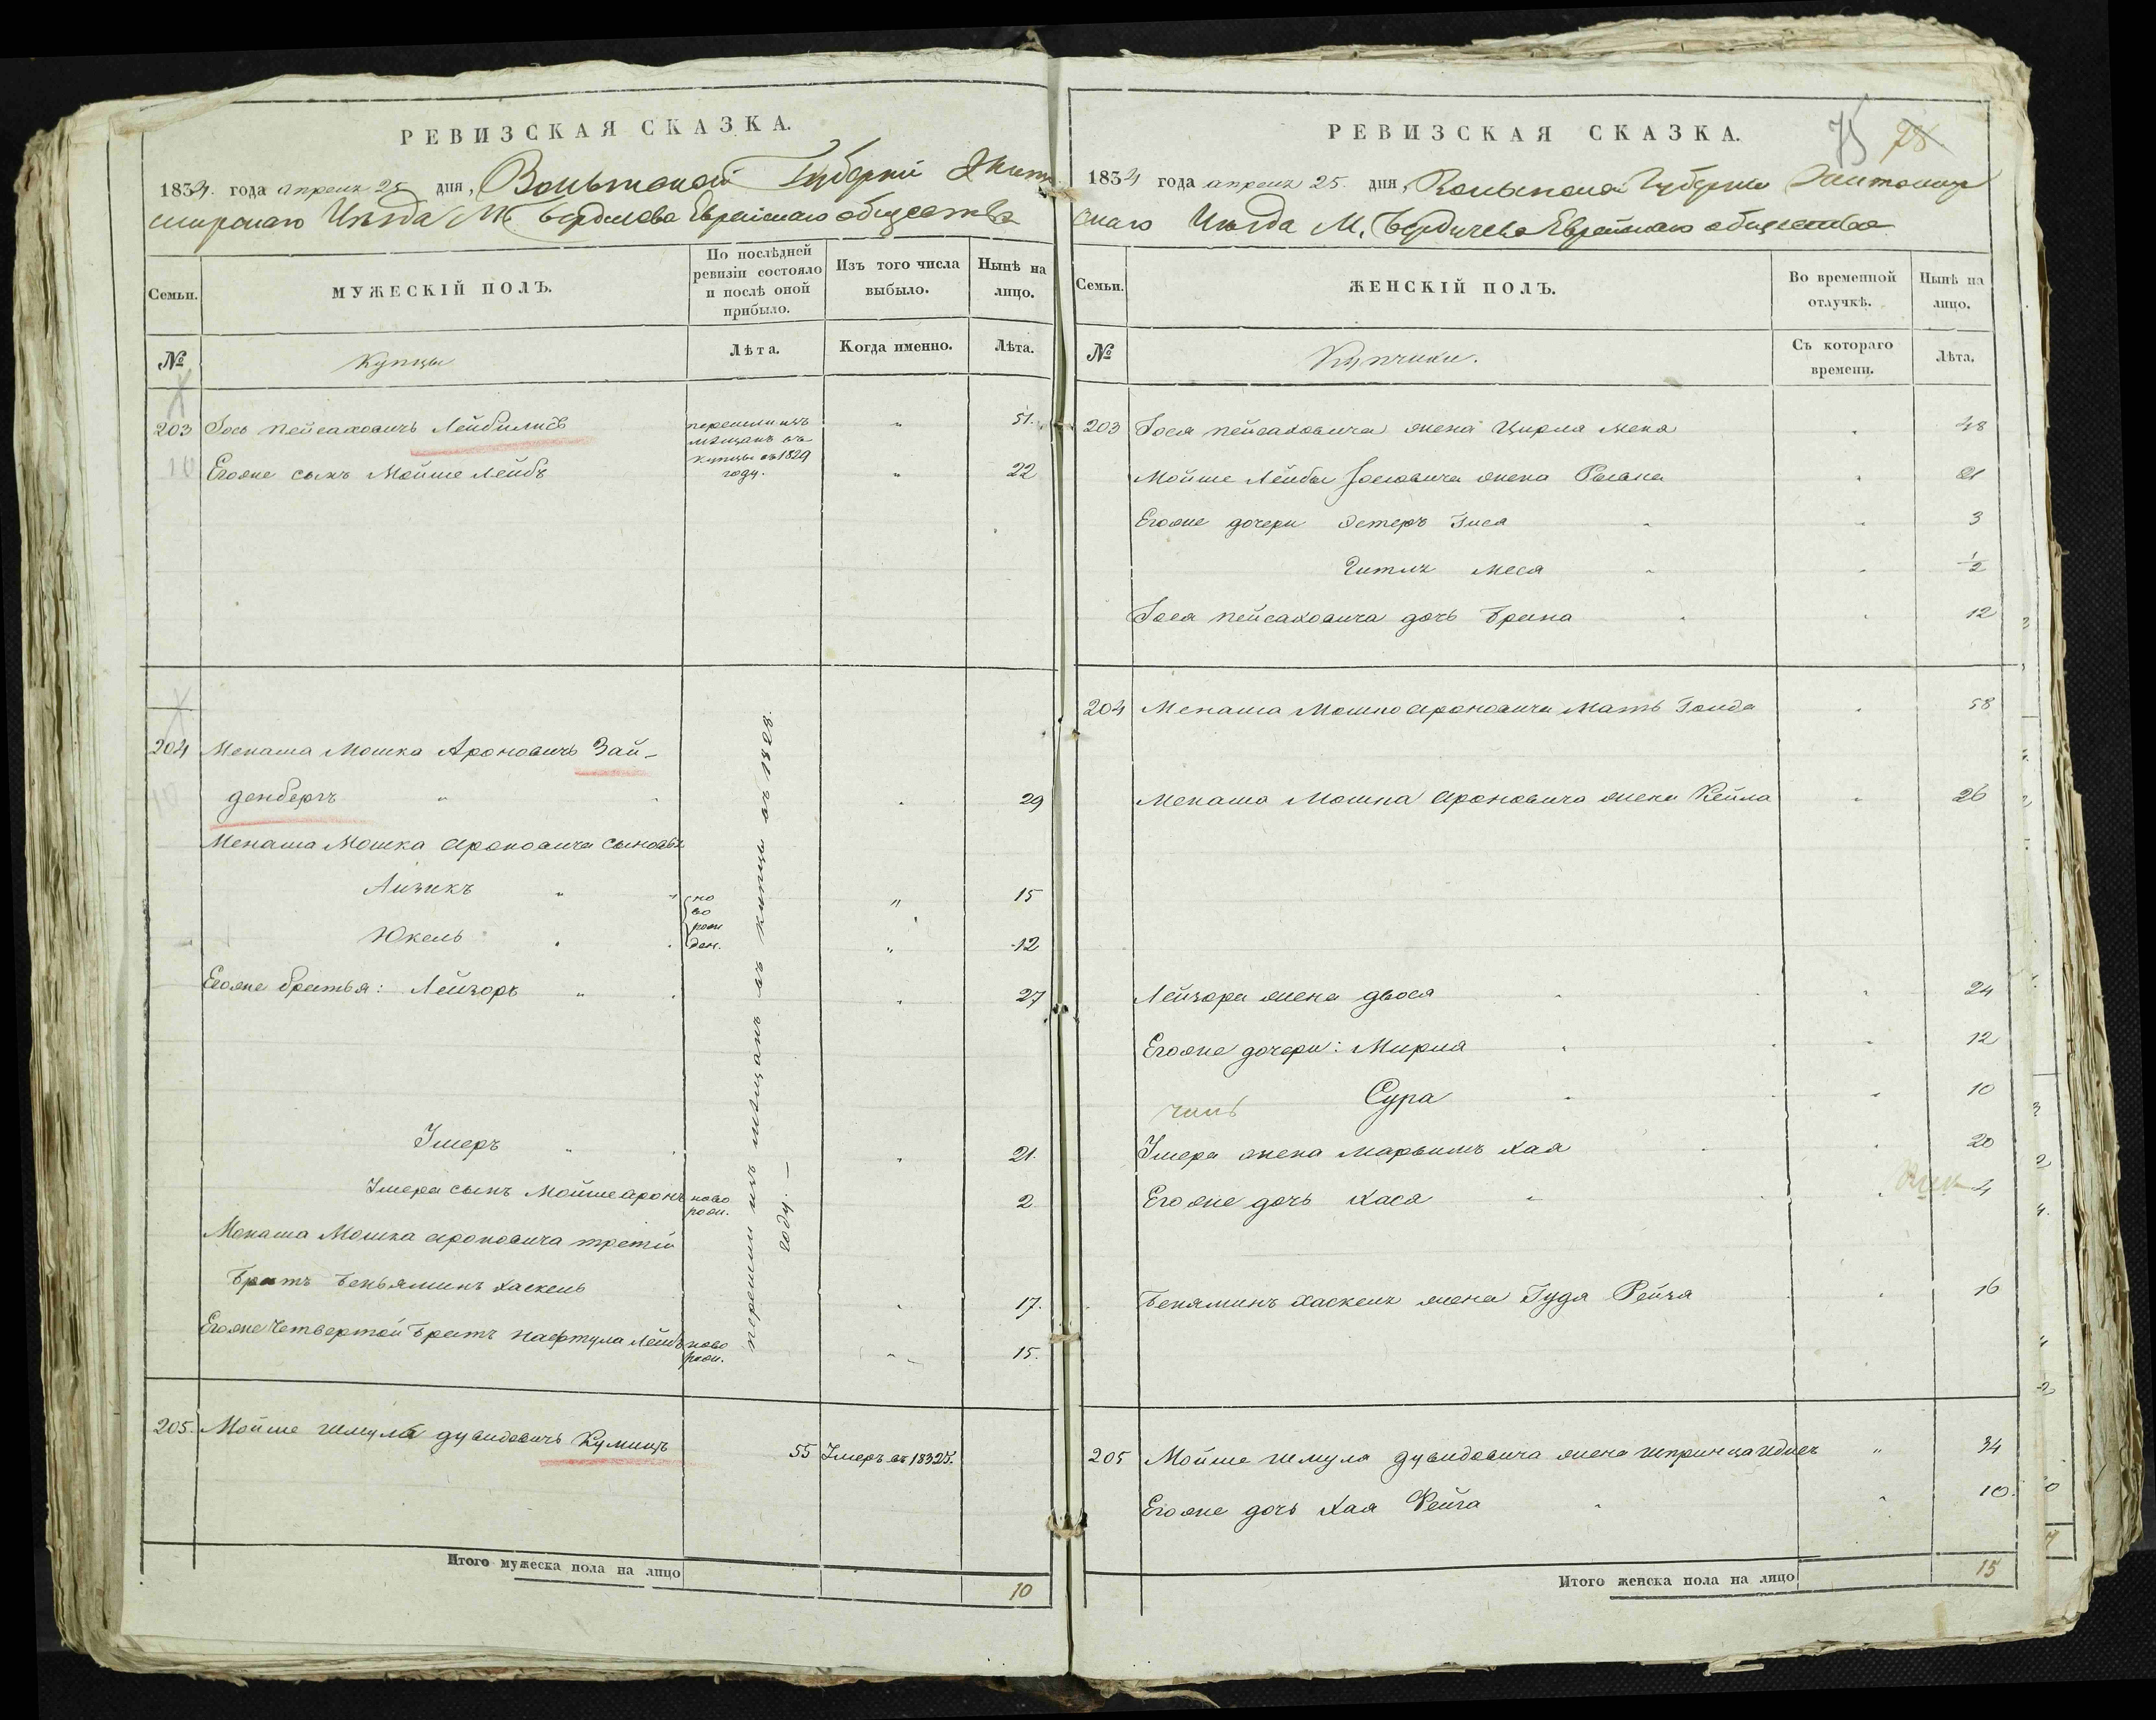 РЕВИЗСКАЯ СКАЗКА.
1834. года апреля 25 дня, Волынской Губернiи Жито
мирскаго Уѣзда М. Бердичева Еврейскаго общества
Семьи.
МУЖЕСКIЙ ПОЛЪ.
По послѣдней
ревизiи состояло
и послѣ оной
прибыло.
Изъ того числа
выбыло.
Нынѣ на
лицо.
№
Купцы
Лѣта.
Когда именно.
Лѣта.
203 Iось Пейсаховичъ 51.
перешли изъ
мѣщанъ въ
купцы въ 1829
году.
10 Егоже сынъ Мойше Лейбъ " 22
204 Менаша Мошка Ароновичъ Зай-
10 денбергъ " 29
Менаша Мошка Ароновича сыновья
Айзикъ " 15
но
во
рож
ден.
Юкель " 12
Егоже братья: Лейзоръ " 27
Iмеръ " 21.
Iмера сынъ Мойше Аронъ ново
рож. 2
Менаша Мошка Ароновича третiй
Братъ Беньяминъ Хаскель 17.
Егоже четвертой Братъ Нафтула Лейбъ ново
рож. 15.
перешли изъ мѣщанъ въ купцы въ 1828.
году. —
205. Мойше Шмула Дувидовичъ 55 Iмеръ въ 1832 г.
Итого мужеска пола на лицо 10
РЕВИЗСКАЯ СКАЗКА.
75
1834 года апреля 25. дня, Волынской Губернiи Житомир
скаго Уѣзда М. Бердичева Еврейскаго общества
Семьи.
ЖЕНСКIЙ ПОЛЪ.
Во временной
отлучкѣ.
Нынѣ на
лицо.
№
Купчихи.
Съ котораго
времени.
Лѣта.
203 Iося Пейсаховича жена Цирля 48
Мойше Лейбы Iосовича жена 21
Егоже дочери Эстеръ 3
Гитля Меся 1/2
Iося Пейсаховича дочь Брана 12
204 Менаша Мошко Ароновича Мать Голда 58
Менаша Мошка Ароновича жена Кейла 26
Лейзора жена Двося 24
Егоже дочери: Мирля 12
Сура 10
Iмера жена Марьямъ Хая 20
Егоже дочь Хася 4
Беняминъ Хаскель жена Гудя Рейзя 16
205 Мойше Шмула Дувидовича жена Шпринца " 34
Егоже дочь Хая Фейга 10.
Итого женска пола на лицо 15